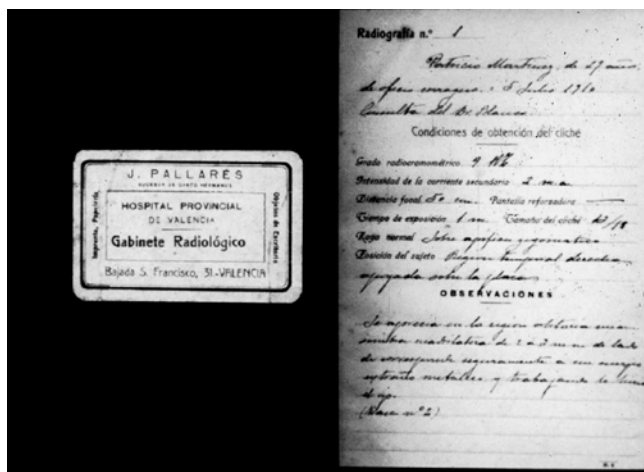 J. PALLARÉS
SUCESOR DE CANTO HERMANOS
Imprenta, Papelería,
HOSPITAL PROVINCIAL
DE VALENCIA
Gabinete Radiológico
Objetos de Escritorio
Bajada S. Francisco, 31.-VALENCIA
Radiografía n.º 1
Patricio Martinez, de 29 años
de oficio 5 Julio 1910
Consulta del Dr. Blanco
Condiciones de obtención del cliché
Grado radiocromométrico 9
Intensidad de la corriente secundaria 2 m.a
Distancia focal 50 cm. Pantalla reforzadora —
Tiempo de exposición 1 m Tamaño del cliché 13/18
Rayo normal Sobre apofisis zigomatica
Posición del sujeto Region temporal derecha
apoyada sobre la placa
OBSERVACIONES
Se aprecia en la region orbitaria una
sombra cuadrilatera de 2 a 3 m.m. de lado
corresponde seguramente a un cuerpo
extraño metálico y trabajando le
el ojo.